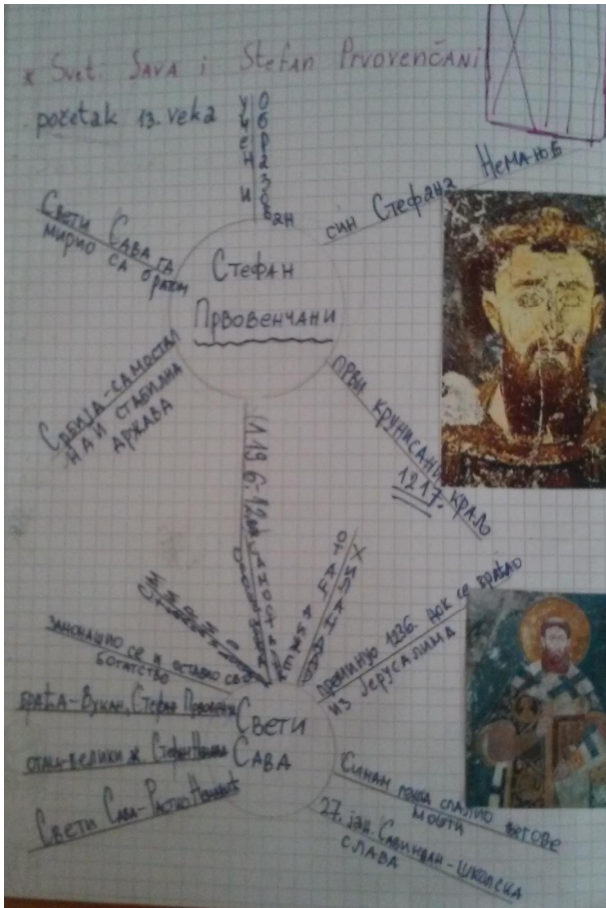 x Svet. SAVA i Stefan PRVOVENČANI
početak 13. veka
УЧЕНИ
ОБРАЗОВАН
син Стефана Немање
Свети Сава га
мирио са браћом
Стефан
Првовенчани
Србија-самостал
на и стабилна
држава
први крунисани краљ
1217.
1196-
отац
Хиланд
преминуо 1236. док се враћао
из Јерусалима
замонашио се и оставио све
богатство
браћа-Вукан, Стефан Првовен
отац-велики ж. Стефан Немања
Свети Сава-Растко Немањић
Свети
Сава
Синан паша спалио његове
мошти
27. јан. Савиндан-школска
слава